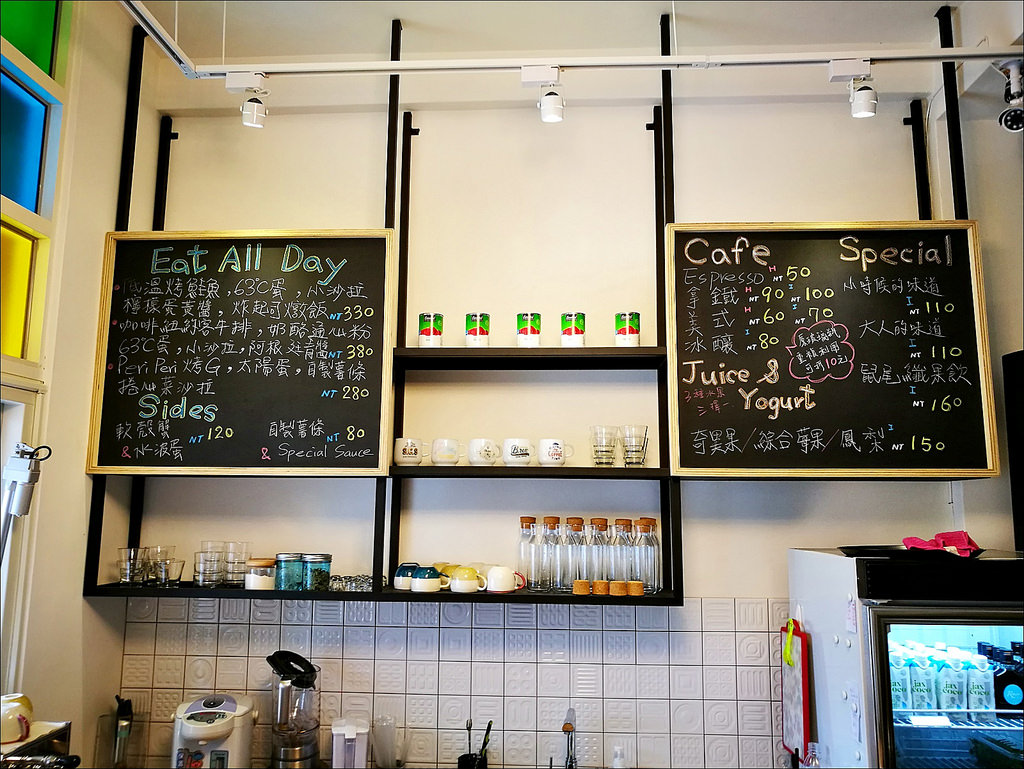 Eat All Day
低溫烤鮭魚,63°C蛋,小沙拉
檸檬蛋黃醬,炸起司燉飯 NT330
咖啡紐約客牛排,奶酪通心粉
63°C蛋,小沙拉,阿根廷青醬 NT 380
Peri Peri 烤G,太陽蛋,自製薯條
捲心菜沙拉 NT 280
Sides
軟殼蟹 NT 120
&水波蛋
自製薯條 NT 80
& Special Sauce
Cafe
Espresso H NT 50
拿鐵 H NT 90 I NT 100
美式 H NT 60 I NT 70
冰釀 I NT 80
Juice & Yogurt
Special
小時候的味道
I NT 110
大人的味道
I NT 110
鼠尾纖果飲
I NT 160
可折10元
奇異果/綜合莓果/鳳梨 I NT 150
jax coco
jax coco
jax coco